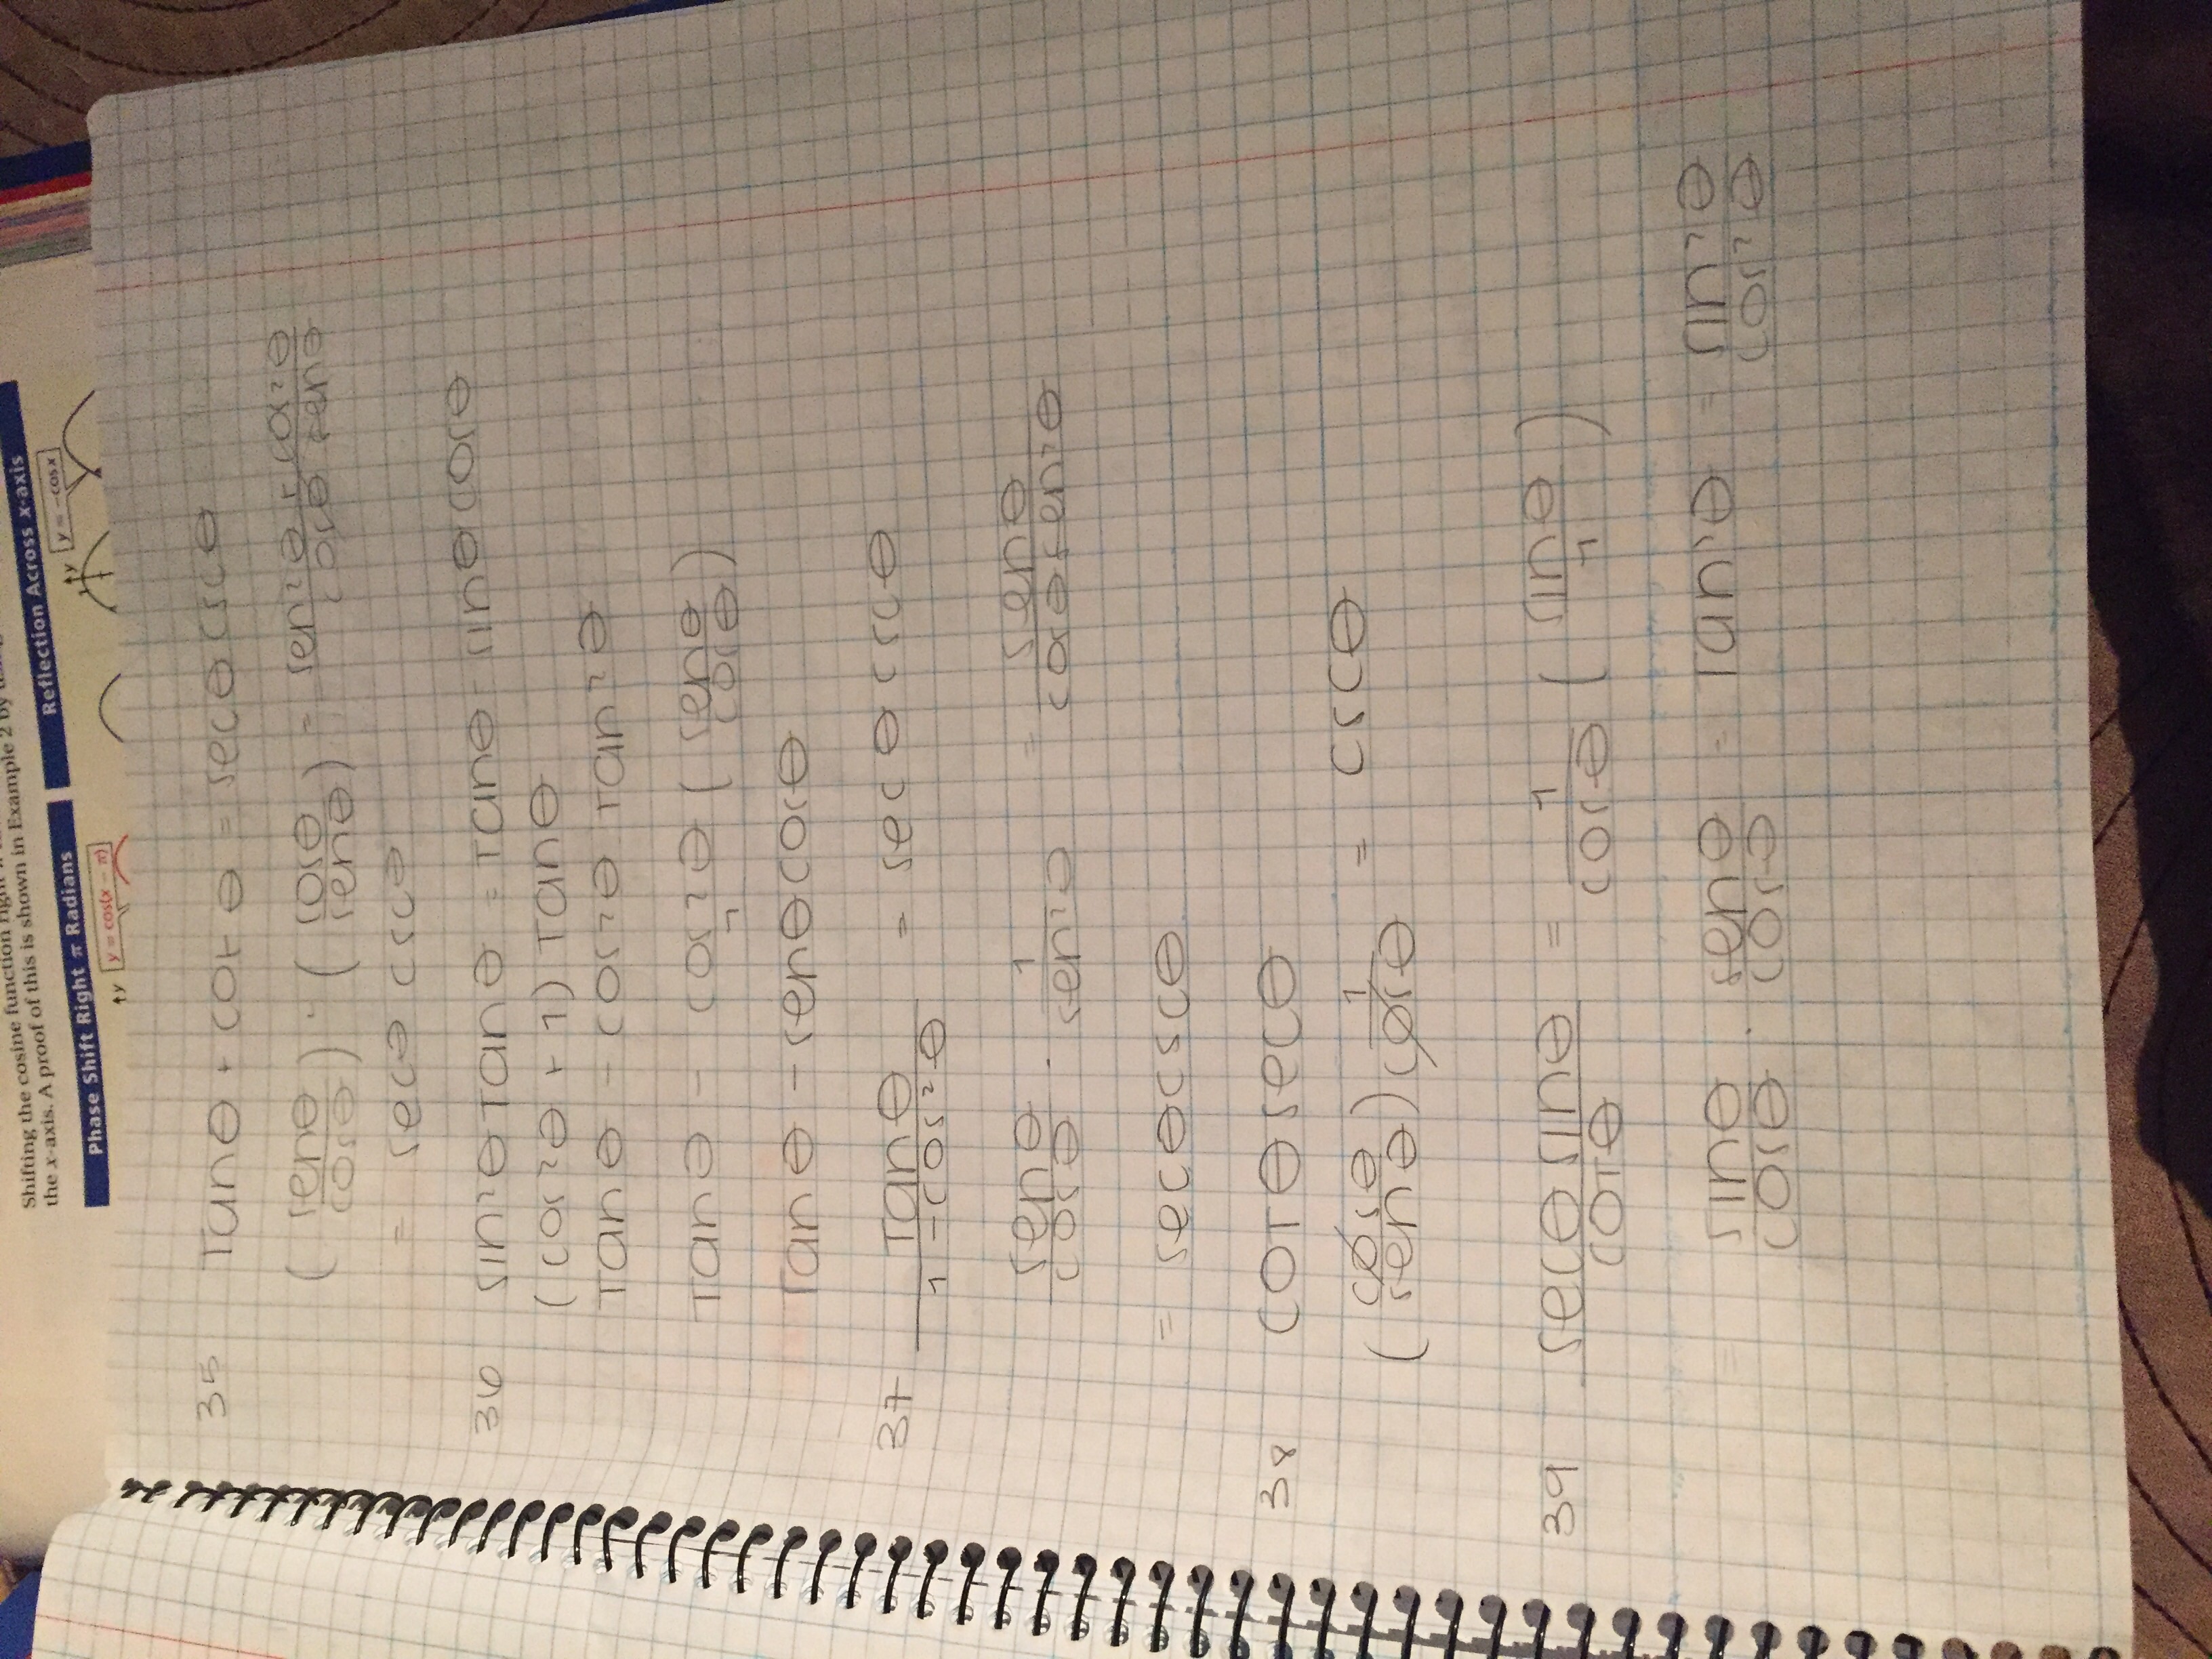 Shifting the cosine function right π
the x-axis. A proof of this is shown in Example 2 by
Phase Shift Right π Radians
Reflection Across x-axis
y = cos(x − π)
y = −cos x
y
y
35 Tanθ + cotθ = secθ cscθ
(senθ/cosθ) · (cosθ/senθ) = sen²θ + cos²θ / cosθ senθ
= secθ cscθ
36 sin²θ Tanθ = Tanθ - sinθ cosθ
(cos²θ + 1) Tanθ
Tanθ - cos²θ Tan²θ
Tanθ - cos²θ/1 (senθ/cosθ)
Tanθ - senθ cosθ
37 Tanθ / 1 - cos²θ = secθ cscθ
senθ/cosθ · 1/sen²θ = senθ / cosθ sen²θ
= secθ cscθ
38 cotθ secθ
(cosθ/senθ) 1/cosθ = cscθ
39 secθ sinθ / cotθ = 1/cosθ (sinθ/1)
sinθ/cosθ · senθ/cosθ = Tan²θ = sin²θ/cos²θ